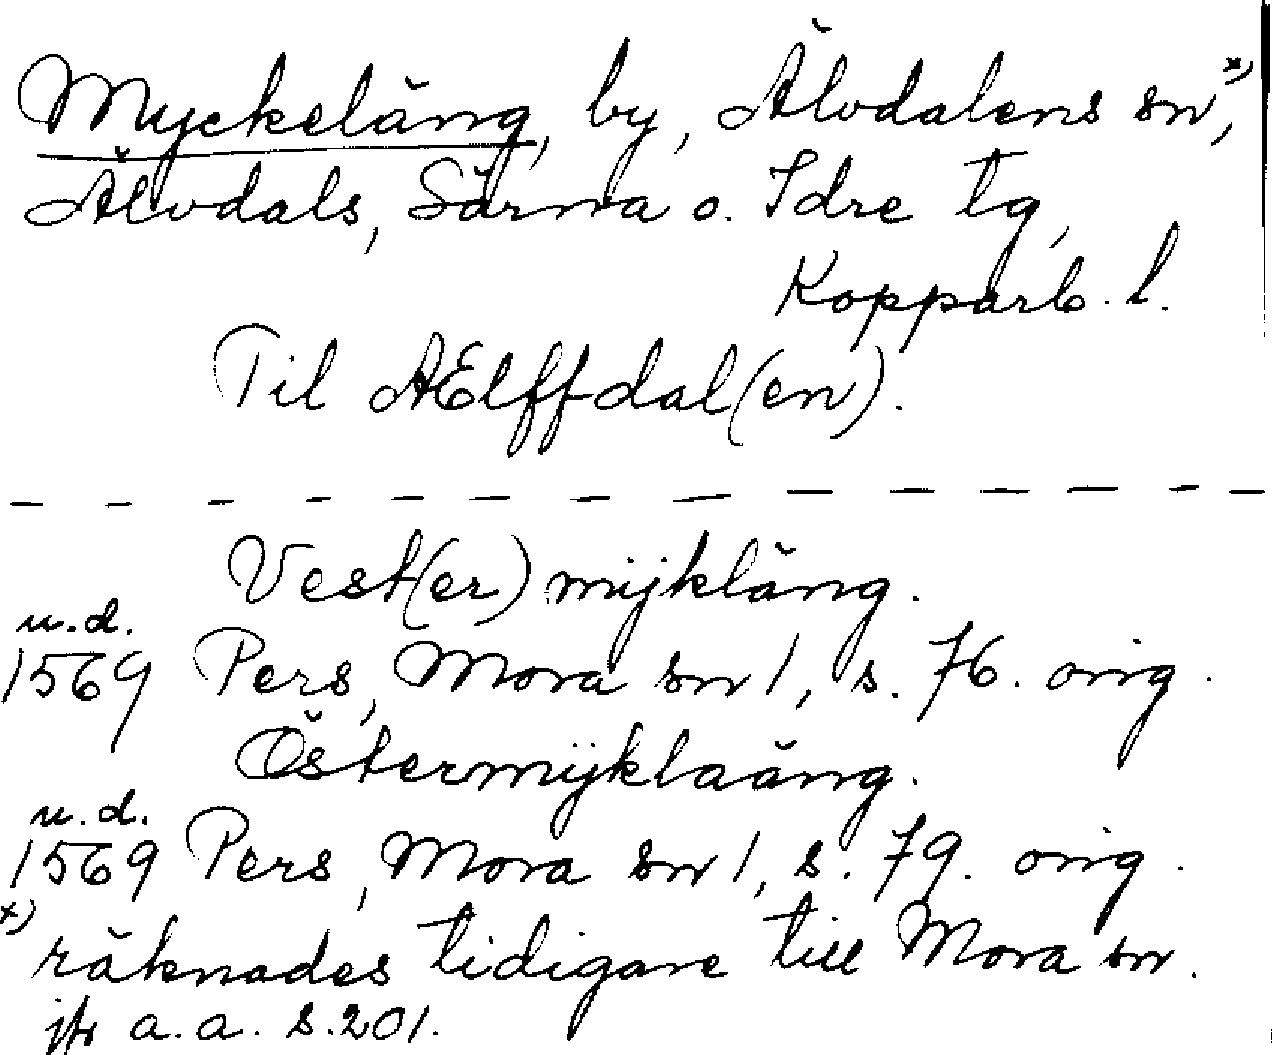 Myckeläng, by, Älvdalens sn x),
Älvdals, Särna o. Idre tg,
Kopparb. l.
Til AElffdal(en).
Vest(er) mijkläng.
u.d.
1569 Pers, Mora sn 1, s. 76. orig.
Östermijklaäng.
u.d.
1569 Pers, Mora sn 1, s. 79. orig.
x) räknades tidigare till Mora sn.
jfr a.a. s.201.